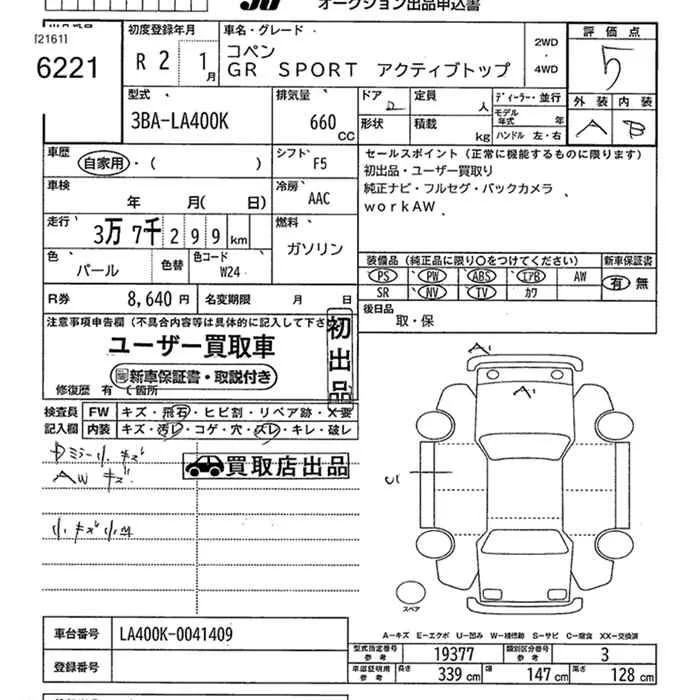 オークション出品申込書
[2161]
6221
初度登録年月
R 2 1月
車名・グレード
コペン
GR SPORT アクティブトップ
2WD
4WD
評価点
5
外装 内装
A B
型式
3BA-LA400K
排気量
660 CC
ドア
形状
定員 人
積載 kg
ディーラー・並行
モデル年式 年
ハンドル 左・右
車歴
自家用・( )
シフト F5
車検 年 月( 日)
冷房 AAC
走行 3万7千299km
燃料 ガソリン
色 パール
色替
色コード W24
R券 8,640 円
名変期限 月 日
セールスポイント (正常に機能するものに限ります)
初出品・ユーザー買取り
純正ナビ・フルセグ・バックカメラ
workAW
装備品 (純正品に限り○をつけてください)
新車保証書
PS PW ABS エアB AW
SR NV TV カワ
有 無
後日品
取・保
注意事項申告欄(不具合内容等は具体的に記入して下さ
ユーザー買取車
新車保証書・取説付き
初出品
修復歴 有 ( 箇所
検査員記入欄
FW キズ・飛石・ヒビ割・リペア跡・X要
内装 キズ・汚レ・コゲ・穴・スレ・キレ・破レ
ミラー小キズ
AW キズ
小キズ小凹
買取店出品
A
A
U
スペア
車台番号 LA400K-0041409
登録番号
A−キズ E−エクボ U−凹み W−補修跡 S−サビ C−腐食 XX−交換済
型式指定番号 参考 19377
類別区分番号 参考 3
車庫証明用 参考 長さ 339 cm 幅 147 cm 高さ 128 cm